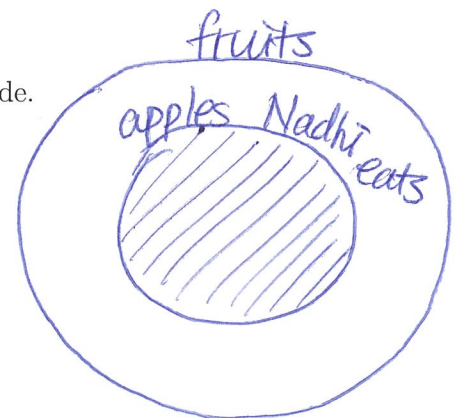 fruits
de.
apples Nadhi eats